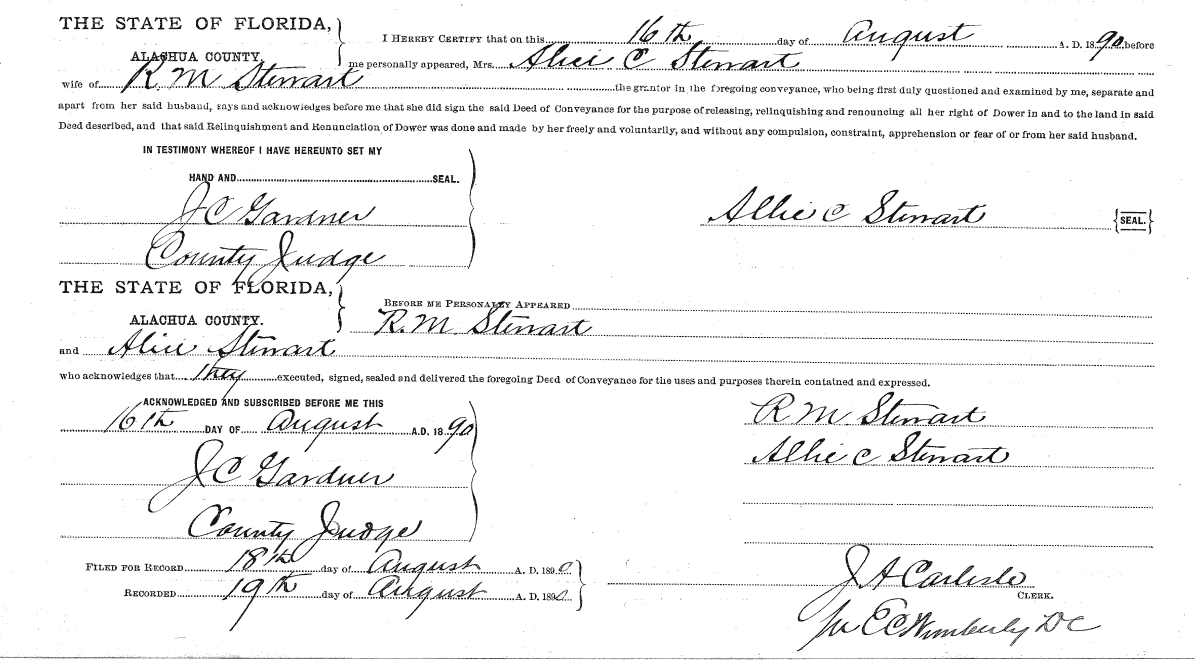 THE STATE OF FLORIDA,
ALACHUA COUNTY.
I HEREBY CERTIFY that on this 16th day of August A. D. 1890, before
me personally appeared, Mrs. Alice C Stewart
wife of R. M Stewart the grantor in the foregoing conveyance, who being first duly questioned and examined by me, separate and
apart from her said husband, says and acknowledges before me that she did sign the said Deed of Conveyance for the purpose of releasing, relinquishing and renouncing all her right of Dower in and to the land in said
Deed described, and that said Relinquishment and Renunciation of Dower was done and made by her freely and voluntarily, and without any compulsion, constraint, apprehension or fear of or from her said husband.
IN TESTIMONY WHEREOF I HAVE HEREUNTO SET MY
HAND AND SEAL.
J C Gardner
Allie C Stewart {SEAL.}
County Judge
THE STATE OF FLORIDA,
ALACHUA COUNTY.
BEFORE ME PERSONALLY APPEARED
R. M. Stewart
and Alice Stewart
who acknowledges that they executed, signed, sealed and delivered the foregoing Deed of Conveyance for the uses and purposes therein contained and expressed.
ACKNOWLEDGED AND SUBSCRIBED BEFORE ME THIS
16th DAY OF August A.D. 1890
R M Stewart
J C Gardner
Allie C Stewart
County Judge
FILED FOR RECORD 18th day of August A. D. 1890
RECORDED 19th day of August A. D. 1890
J A Carlisle
CLERK.
E C Wimberly DC